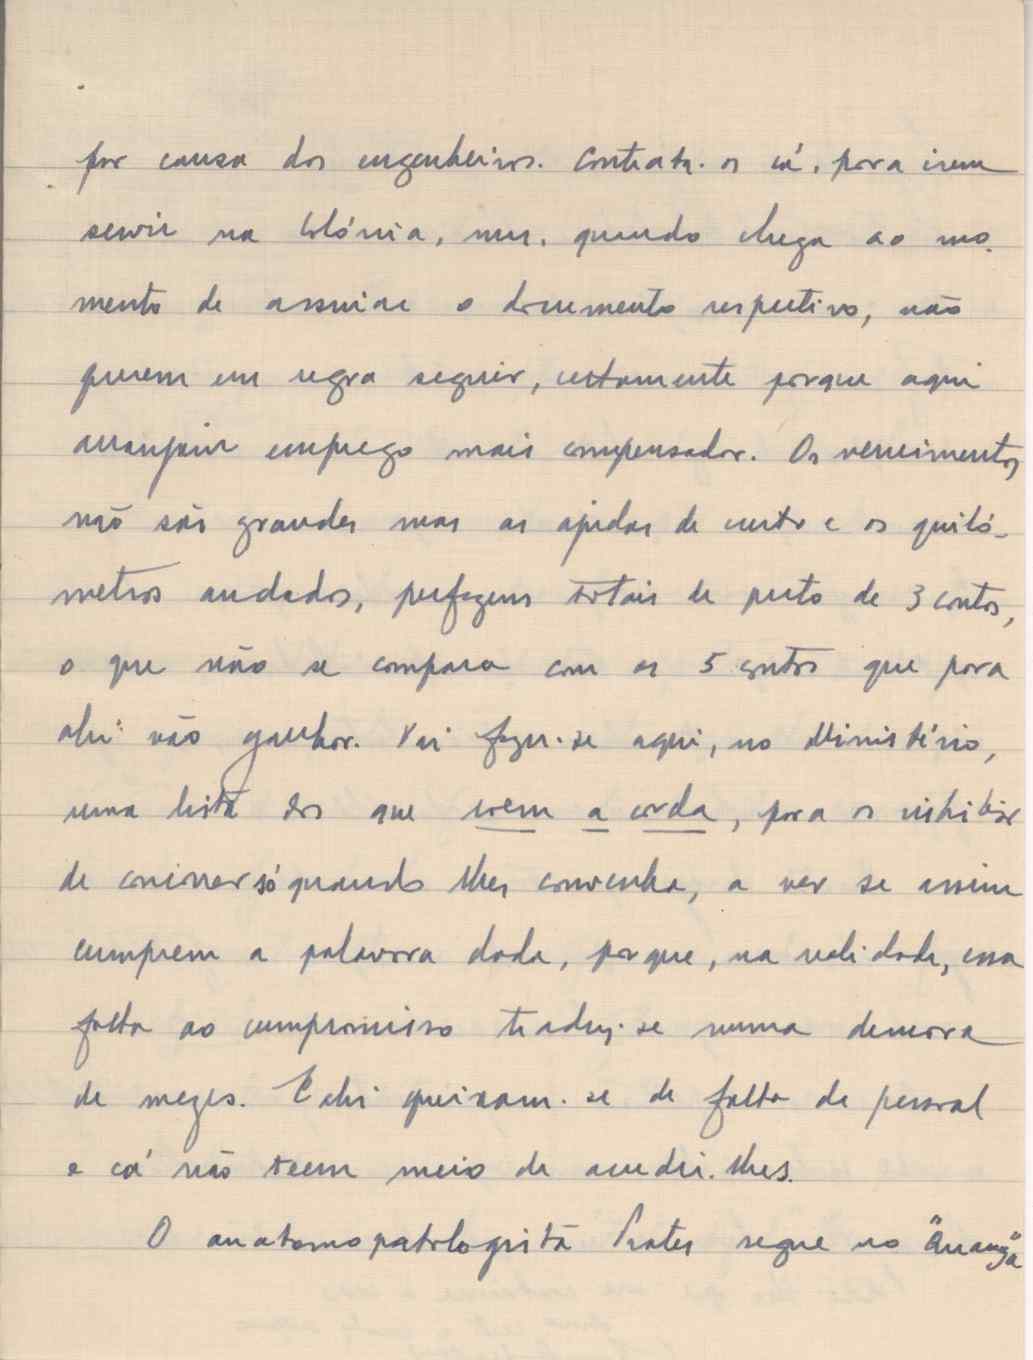 por causa dos engenheiros. Contrata-os cá, para irem
servir na Colónia, mas, quando chega ao mo-
mento de assinar o documento respectivo, não
querem em regra seguir, certamente porque aqui
arranjam emprego mais compensador. Os vencimentos
não são grandes mas as ajudas de custo e os quiló-
metros andados, perfazem totais de perto de 3 contos,
o que não se compara com os 5 contos que para
ahi vão ganhar. Vai fazer-se aqui, no Ministério,
uma lista dos que roem a corda, para os inhibir
de concorrer só quando lhes convenha, a ver se assim
cumprem a palavra dada, porque, na realidade, essa
falta ao compromisso traduz-se numa demora
de mezes. E ahi queixam-se de falta de pessoal
e cá não teem meio de acudir-lhes.
O anatomopatologista Prates segue no "Quanza"